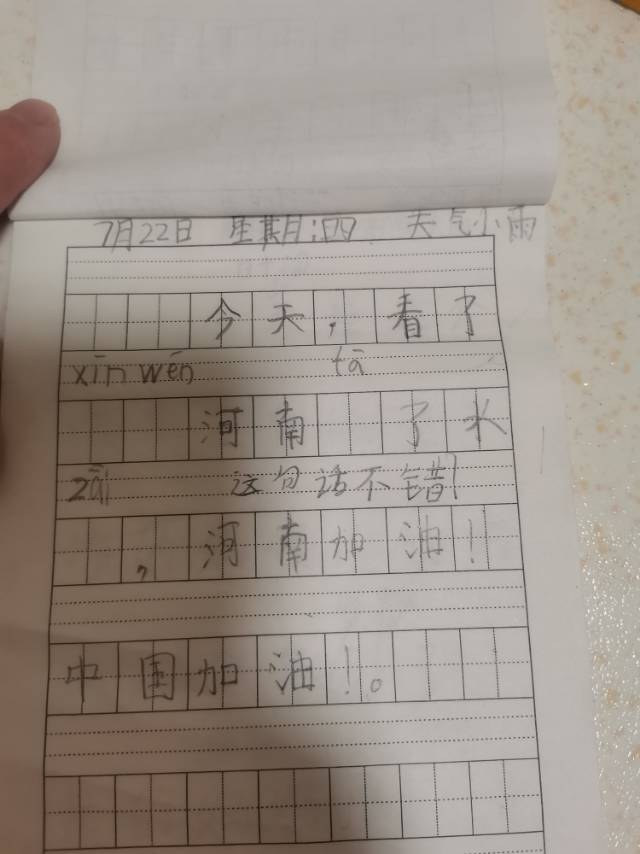 7月22日 星期四 天气小雨
今天,看了
xīn wén tā
河南 了水
zāi 这句话不错
,河南加油!
中国加油!。